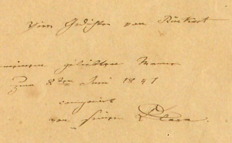 Vier Gedichte von Rückert
meinem geliebten Manne
Zum 8ten Juni 1841
componirt
von seiner Clara.